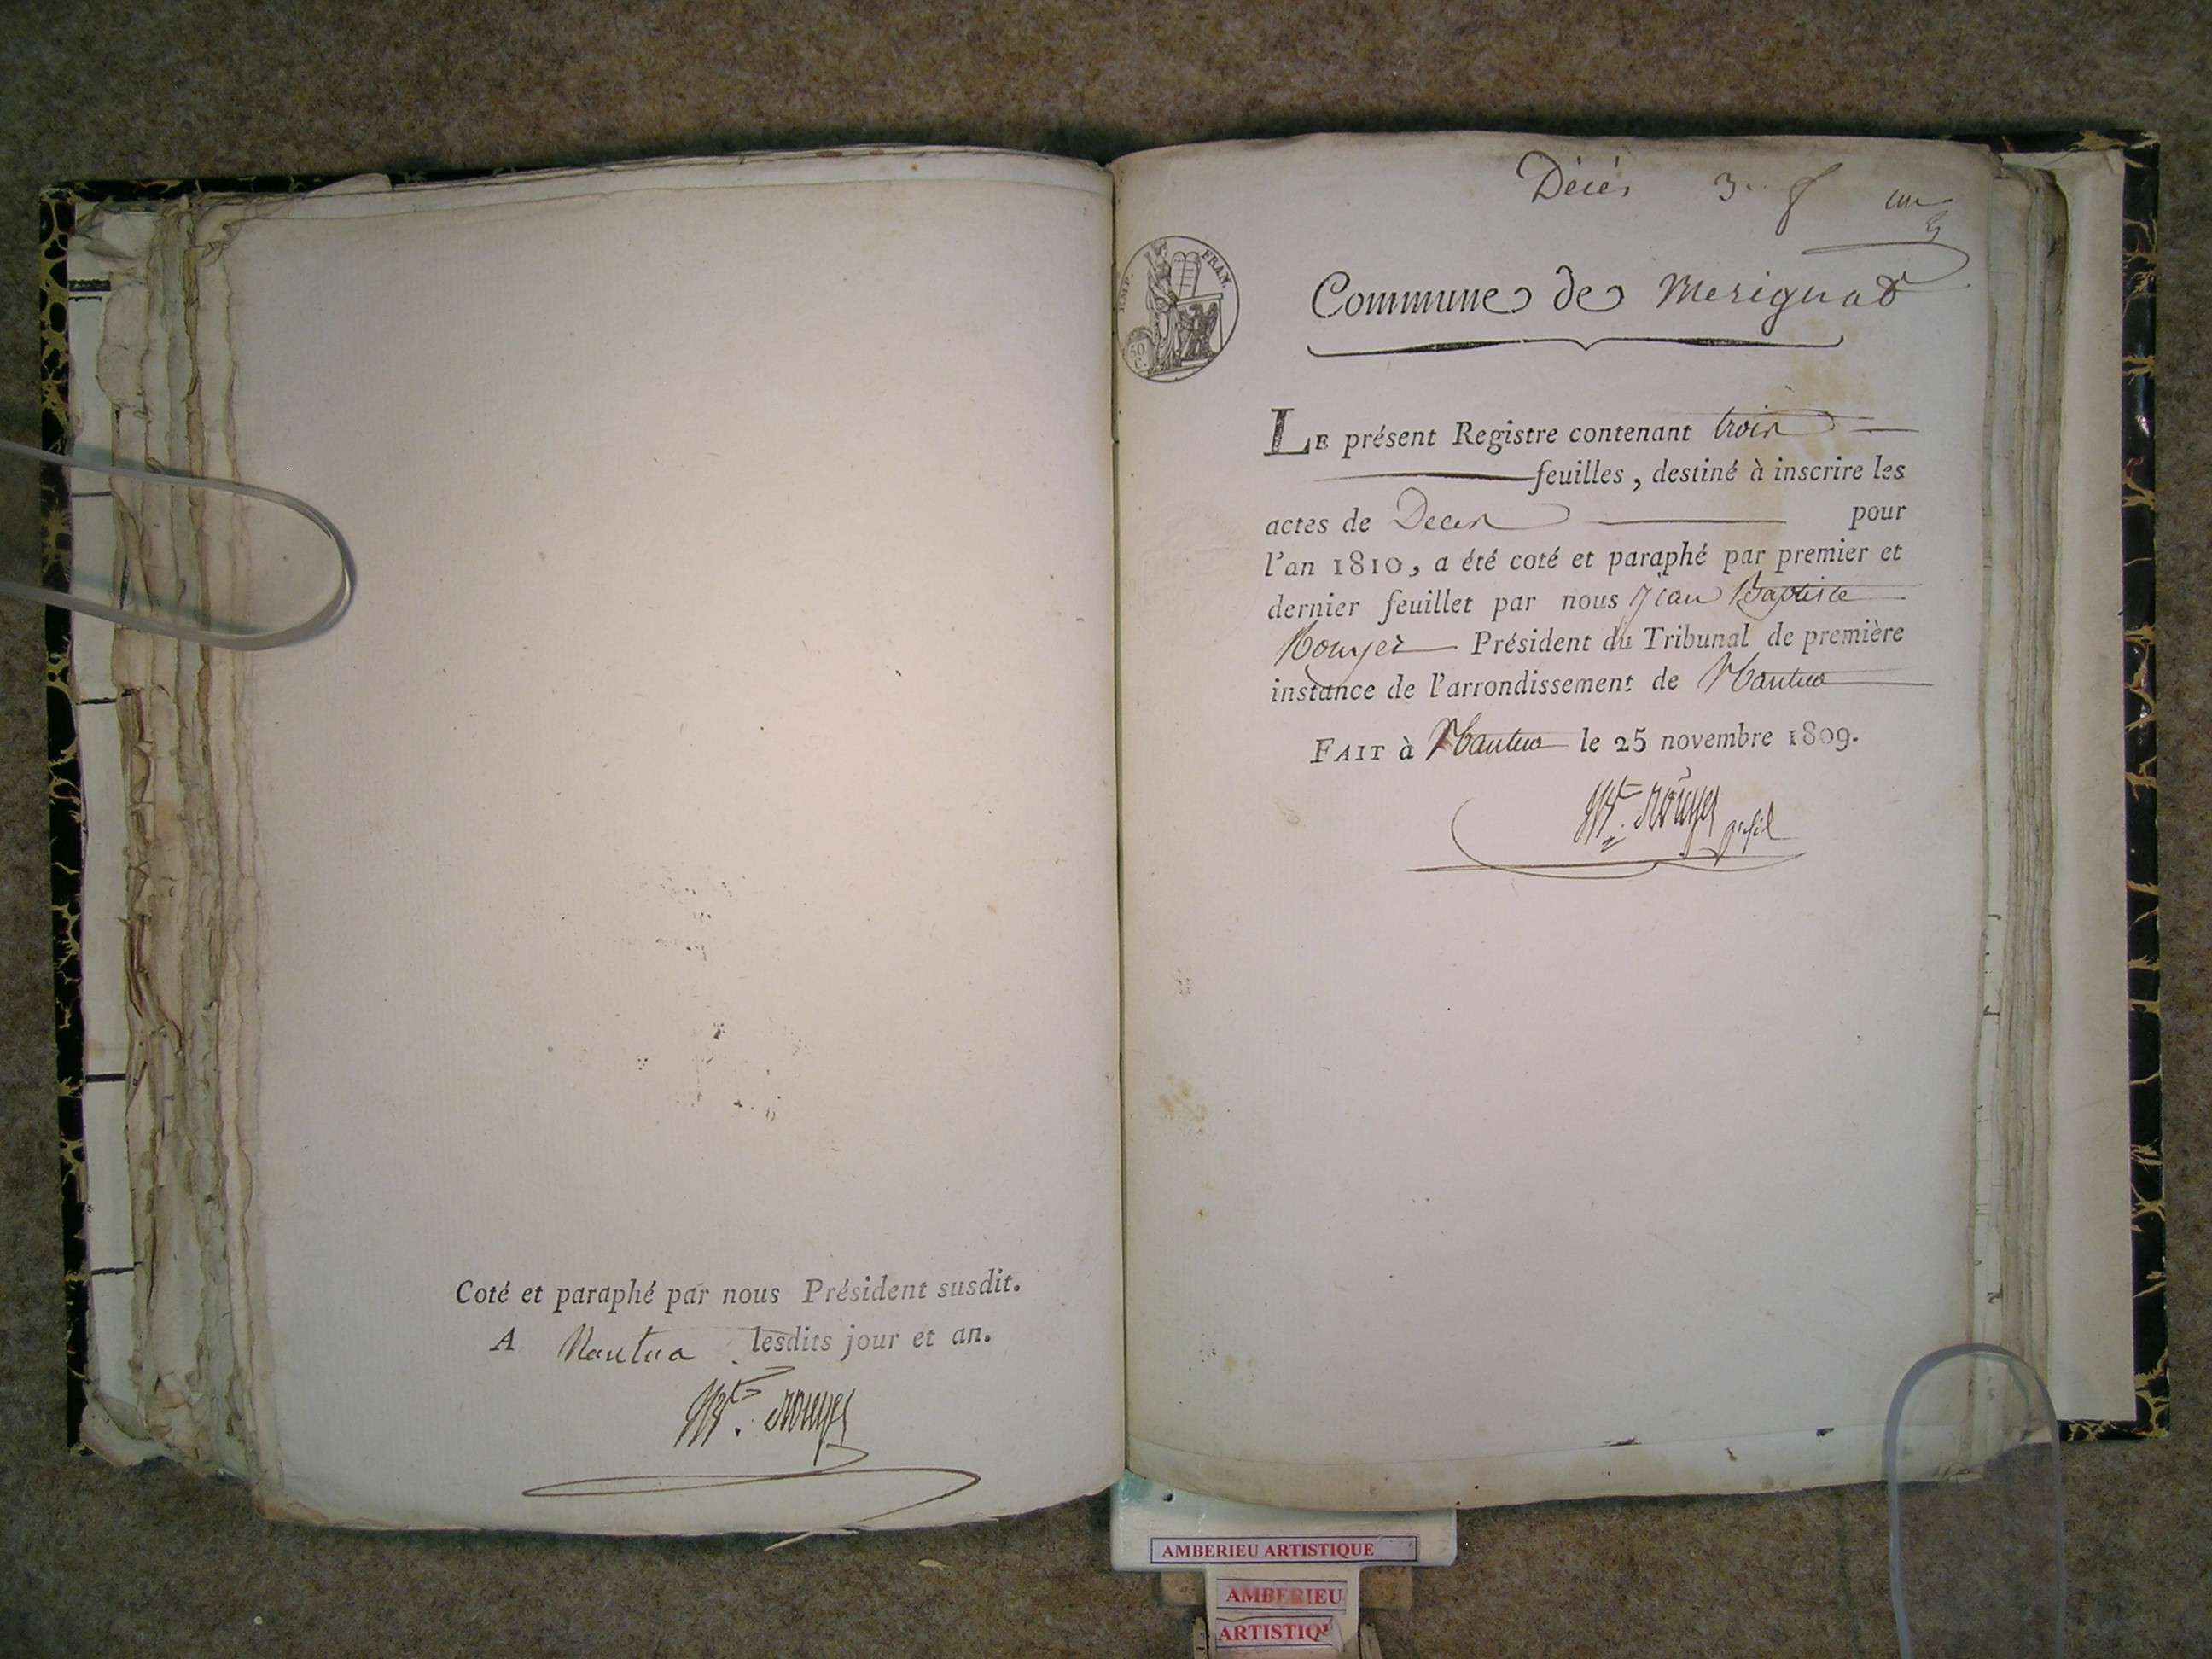 Coté et paraphé par nous Président susdit.
A Nantua lesdits jour et an.
Rouyer
Décès 3. f un
IMP. FRAN.
50 C.
Commune de Merignat
LE présent Registre contenant trois
feuilles, destiné à inscrire les
actes de Deces pour
l'an 1810, a été coté et paraphé par premier et
dernier feuillet par nous Jean Baptiste
Rouyer Président du Tribunal de première
instance de l'arrondissement de Nantua
FAIT à Nantua le 25 novembre 1809.
Rouyer
AMBERIEU ARTISTIQUE
AMBERIEU
ARTISTIQ